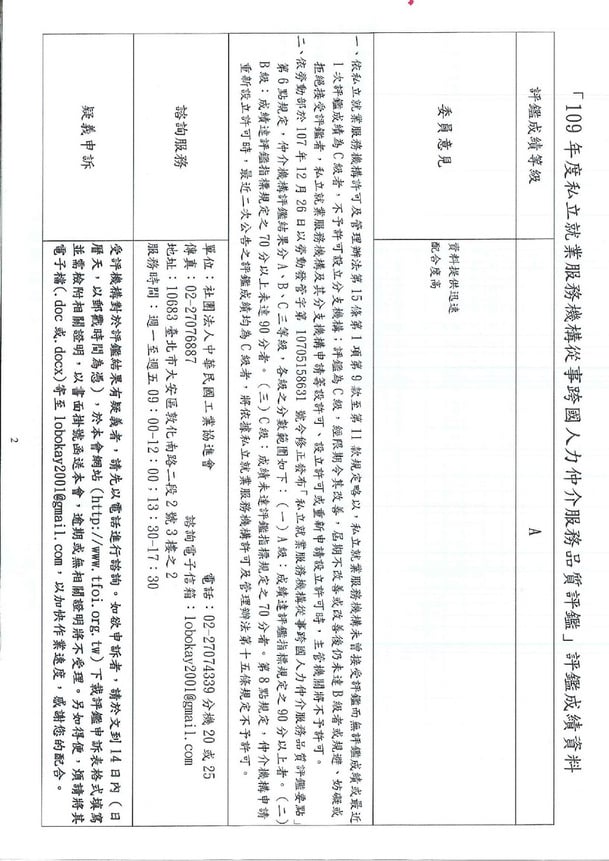 「109 年度私立就業服務機構從事跨國人力仲介服務品質評鑑」評鑑成績資料
評鑑成績等級
A
委員意見
資料提供迅速
配合度高
一、依私立就業服務機構許可及管理辦法第 15 條第 1 項第 9 款至第 11 款規定略以，私立就業服務機構未曾接受評鑑而無評鑑成績或最近
1 次評鑑成績為 C 級者，不予許可設立分支機構；評鑑為 C 級，經限期令其改善，屆期不改善或改善後仍未達 B 級者或規避、妨礙或
拒絕接受評鑑者，私立就業服務機構及其分支機構申請籌設許可、設立許可或重新申請設立許可時，主管機關將不予許可。
二、依勞動部於 107 年 12 月 26 日以勞動發管字第 10705158631 號令修正發布「私立就業服務機構從事跨國人力仲介服務品質評鑑要點」
第 6 點規定，仲介機構評鑑結果分 A、B、C 三等級，各級之分數範圍如下：(一) A 級：成績達評鑑指標規定之 90 分以上者。(二)
B 級：成績達評鑑指標規定之 70 分以上未達 90 分者。(三) C 級：成績未達評鑑指標規定之 70 分者。第 8 點規定，仲介機構申請
重新設立許可時，最近二次公告之評鑑成績均為 C 級者，將依據私立就業服務機構許可及管理辦法第十五條規定不予許可。
諮詢服務
單位：社團法人中華民國工業協進會 電話：02-27074339 分機 20 或 25
傳真：02-27076887 諮詢電子信箱：lobokay2001@gmail.com
地址：10683 臺北市大安區敦化南路二段 2 號 3 樓之 2
服務時間：週一至週五 09：00-12：00；13：30-17：30
疑義申訴
受評機構對於評鑑結果有疑義者，請先以電話進行諮詢。如欲申訴者，請於文到 14 日內（日
曆天，以郵戳時間為憑），於本會網站(http://www.tfoi.org.tw)下載評鑑申訴表格式填寫
並需檢附相關證明，以書面掛號函送本會，逾期或無相關證明將不受理。另如得便，煩請將其
電子檔(.doc 或.docx)寄至 lobokay2001@gmail.com，以加快作業速度，感謝您的配合。
2